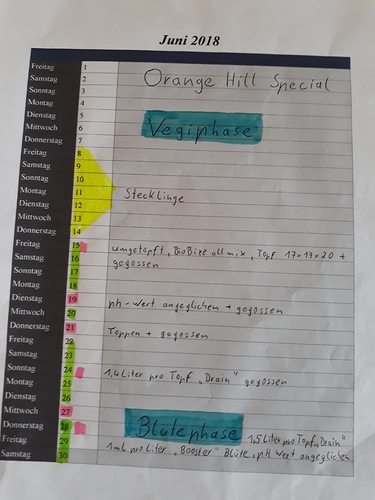 Juni 2018
Freitag 1
Samstag 2 Orange Hill Special
Sonntag 3
Montag 4
Dienstag 5
Mittwoch 6 Vegiphase
Donnerstag 7
Freitag 8
Samstag 9
Sonntag 10
Montag 11 Stecklinge
Dienstag 12
Mittwoch 13
Donnerstag 14
Freitag 15 umgetopft, BioBizz all mix, Topf 17x17x20 +
Samstag 16 gegossen
Sonntag 17
Montag 18
Dienstag 19 ph-Wert angeglichen + gegossen
Mittwoch 20
Donnerstag 21 Toppen + gegossen
Freitag 22
Samstag 23
Sonntag 24 1,4 Liter pro Topf „Drain" gegossen
Montag 25
Dienstag 26
Mittwoch 27
Donnerstag 28 Blütephase 1,5 Liter pro Topf „Drain"
Freitag 29 1mL pro Liter „Booster" Blüte, pH Wert angeglichen
Samstag 30